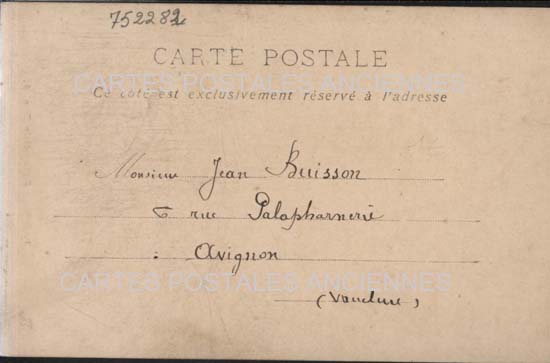 752282
CARTE POSTALE
CARTES POSTALES ANCIENNES
Ce côté est exclusivement réservé à l'adresse
Monsieur Jean Buisson
6 rue Palapharnerie
Avignon
CARTES POSTALES ANCIENNES
(Vaucluse)